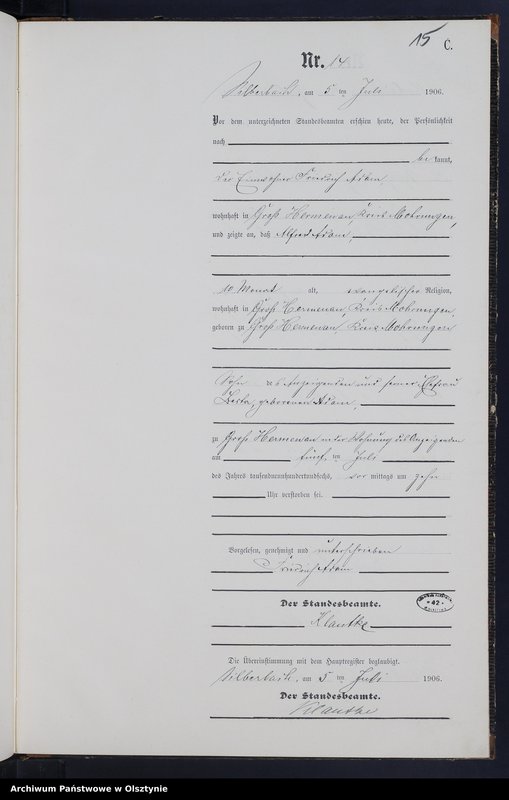 15
C.
Nr. 14
Silberbach, am 5ten Juli 1906.
Vor dem unterzeichneten Standesbeamten erschien heute, der Persönlichkeit
nach
bekannt,
der Einwohner Friedrich Adam,
wohnhaft in Groß Hermenau, Kreis Mohrungen,
und zeigte an, daß Alfred Adam,
10 Monat alt, evangelischer Religion,
wohnhaft in Groß Hermenau, Kreis Mohrungen,
geboren zu Groß Hermenau, Kreis Mohrungen
Sohn des Anzeigenden und seiner Ehefrau
Berta, geborenen Adam,
zu Groß Hermenau in der Wohnung des Anzeigenden
am fünften Juli
des Jahres tausendneunhundertundsechs, vormittags um zehn
Uhr verstorben sei.
Vorgelesen, genehmigt und unterschrieben
Friedrich Adam
Der Standesbeamte.
Klautke
Die Übereinstimmung mit dem Hauptregister beglaubigt.
Silberbach, am 5ten Juli 1906.
Der Standesbeamte.
Klautke
Archiwum Państwowe w Olsztynie